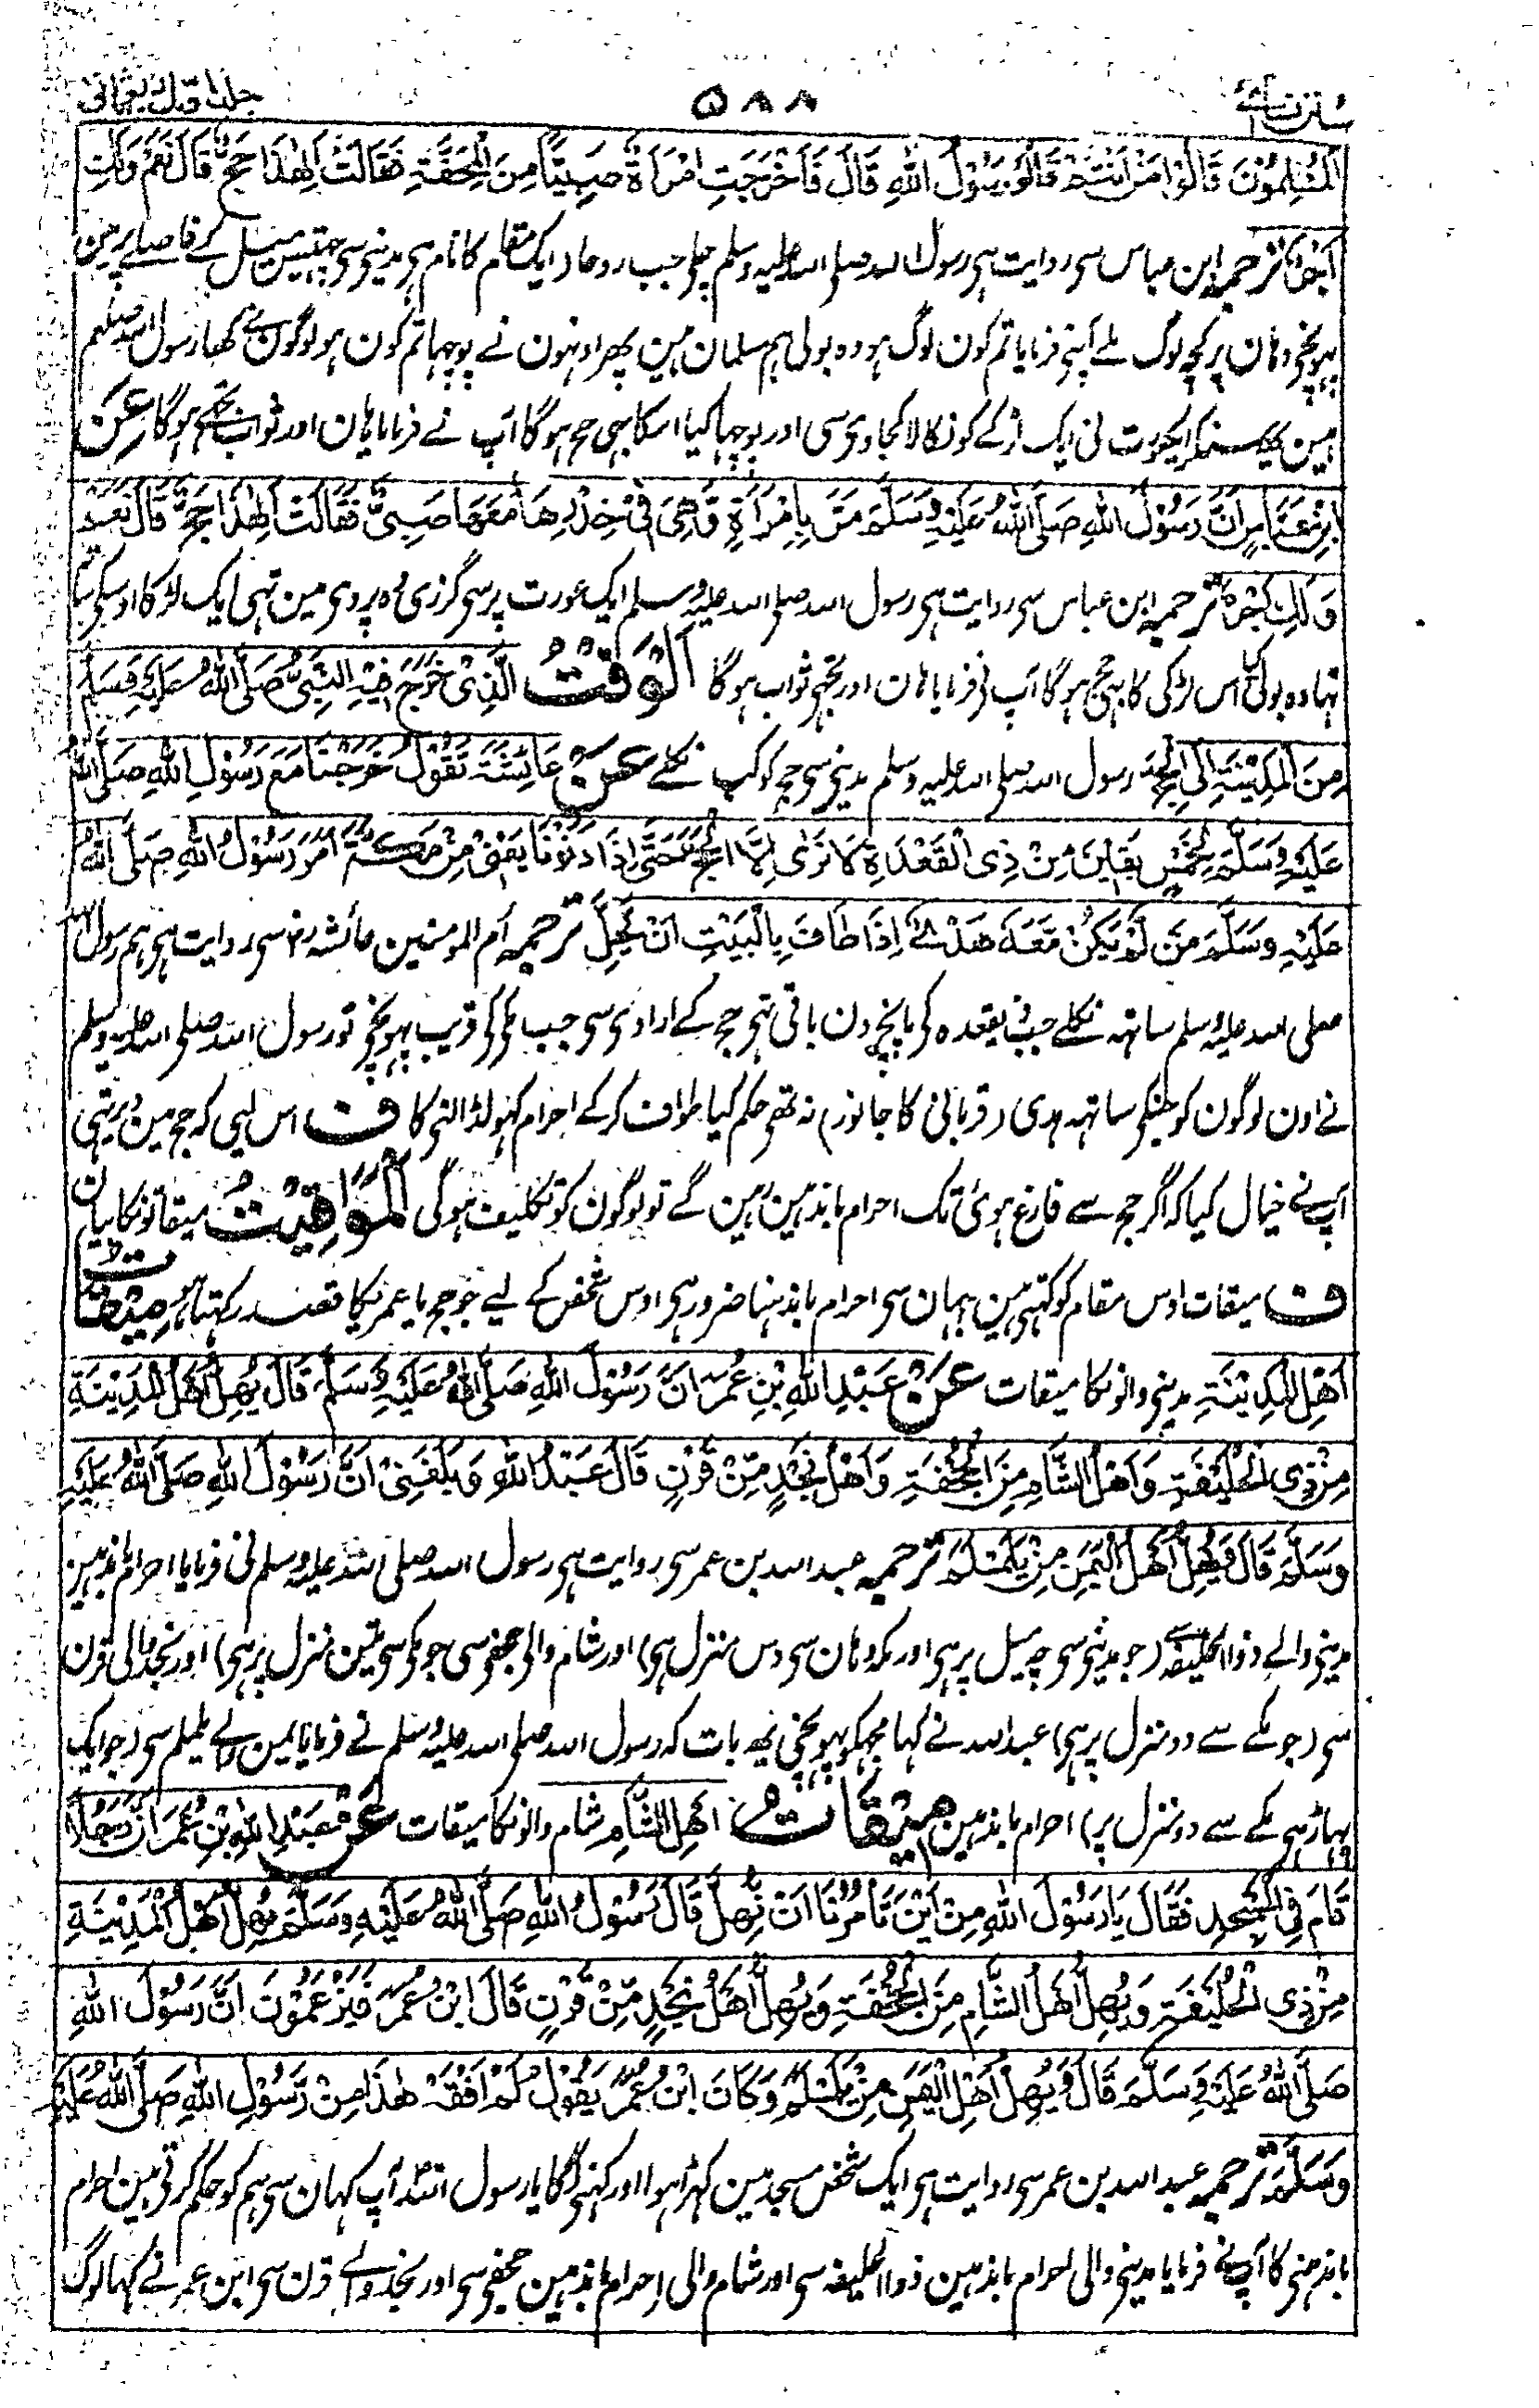 سنن نسائی ۵۸۸ جلد اول ربع ثانی
الْمُسْلِمُوْنَ قَالُوْا مَنْ اَنْتُمْ قَالُوْا رَسُوْلُ اللهِ قَالَ فَاَخْرَجَتِ امْرَاَةٌ صَبِيًّا مِنَ الْمِحَفَّةِ فَقَالَتْ اَلِهٰذَا حَجٌّ قَالَ نَعَمْ وَلَكِ
اَجْرٌ ترجمہ ابن عباس سی روایت ہی رسول اللہ صلی اللہ علیہ وسلم چلی جب روحا (ایک مقام کا نام ہی مدینی سی چھتیس میل کے فاصلے پر) مین
پہونچی وہان پر کچھ لوگ ملے آپنی فرمایا تم کون لوگ ہو وہ بولی ہم مسلمان ہین پھر اونہون نے پوچہا تم کون ہو لوگون نے کہا رسول اللہ صلعم
ہین یہ سنکر ایکعورت نی ایک لڑکے کو نکالا کجاوی سی اور پوچہا کیا اسکا بہی حج ہوگا آپ نے فرمایا ہان اور ثواب تجہی ہوگا عَنِ
ابْنِ عَبَّاسٍ اَنَّ رَسُوْلَ اللهِ صَلَّى اللهُ عَلَيْهِ وَسَلَّمَ مَرَّ بِامْرَاَةٍ وَهِيَ فِيْ خِدْرِهَا مَعَهَا صَبِيٌّ فَقَالَتْ اَلِهٰذَا حَجٌّ قَالَ نَعَمْ
وَلَكِ اَجْرٌ ترجمہ ابن عباس سی روایت ہی رسول اللہ صلی اللہ علیہ وسلم ایک عورت پر سی گزری وہ پردی مین تہی ایک لڑکا اوسکی ساتھ
تہا وہ بولی کیا اس لڑکی کا بہی حج ہوگا آپ نی فرمایا ہان اور تجہی ثواب ہوگا اَلْوَقْتُ الَّذِيْ خَرَجَ فِيْهِ النَّبِيُّ صَلَّى اللهُ عَلَيْهِ وَسَلَّمَ
مِنَ الْمَدِيْنَةِ اِلَى الْحَجِّ رسول اللہ صلی اللہ علیہ وسلم مدینی سی حج کو کب نکلے عَنْ عَائِشَةَ تَقُوْلُ خَرَجْنَا مَعَ رَسُوْلِ اللهِ صَلَّى اللهُ
عَلَيْهِ وَسَلَّمَ لِخَمْسٍ بَقِيْنَ مِنْ ذِي الْقَعْدَةِ لَا نَرٰى اِلَّا الْحَجَّ حَتّٰى اِذَا دَنَوْنَا يَعْنِيْ مِنْ مَكَّةَ اَمَرَ رَسُوْلُ اللهِ صَلَّى اللهُ
عَلَيْهِ وَسَلَّمَ مَنْ لَمْ يَكُنْ مَعَهُ هَدْيٌ اِذَا طَافَ بِالْبَيْتِ اَنْ يَحِلَّ ترجمہ ام المومنین عائشہ رض سی روایت ہی ہم رسول اللہ
صلی اللہ علیہ وسلم ساتہہ نکلے جب ذیقعدہ کی پانچ دن باقی تہی حج کے ارادی سی جب مکی کی قریب پہونچی تو رسول اللہ صلی اللہ علیہ وسلم
نے اون لوگون کو جنکی ساتہہ ہدی (قربانی کا جانور) نہ تھی حکم کیا طواف کرکے احرام کہولڈالنی کا ف اس لیی کہ حج مین دیر تہی
آپنے خیال کیا کہ اگر حج سے فارغ ہوئی تک احرام باندہین رہین گے تو لوگون کو تکلیف ہوگی اَلْمَوَاقِيْتُ میقاتونکا بیان
ف میقات اوس مقام کو کہتی ہین جہان سی احرام باندہنا ضرور ہی اوس شخص کے لیے جو حج یا عمریکا قصد رکہتا ہو مِيْقَاتُ
اَهْلِ الْمَدِيْنَةِ مدینی والونکا میقات عَنْ عَبْدِ اللهِ بْنِ عُمَرَ اَنَّ رَسُوْلَ اللهِ صَلَّى اللهُ عَلَيْهِ وَسَلَّمَ قَالَ يُهِلُّ اَهْلُ الْمَدِيْنَةِ
مِنْ ذِي الْحُلَيْفَةِ وَاَهْلُ الشَّامِ مِنَ الْجُحْفَةِ وَاَهْلُ نَجْدٍ مِنْ قَرْنٍ قَالَ عَبْدُ اللهِ وَبَلَغَنِيْ اَنَّ رَسُوْلَ اللهِ صَلَّى اللهُ عَلَيْهِ
وَسَلَّمَ قَالَ وَيُهِلُّ اَهْلُ الْيَمَنِ مِنْ يَلَمْلَمَ ترجمہ عبد اللہ بن عمر سی روایت ہی رسول اللہ صلی اللہ علیہ وسلم نی فرمایا احرام باندہین
مدینی والے ذوالحلیفہ سے (جو مدینی سی چہ میل پر ہی اور مکہ وہان سی دس منزل ہی) اور شام والی جحفی سی جو مکی سی تین منزل پر ہی) اور نجد والی قرن
سی (جو مکے سے دو منزل پر ہی) عبد اللہ نے کہا مجہکو پہونچی یہ بات کہ رسول اللہ صلی اللہ علیہ وسلم نے فرمایا یمن والے یلملم سی (جو ایک
پہاڑ ہی مکے سے دو منزل پر) احرام باندہین مِيْقَاتُ اَهْلِ الشَّامِ شام والونکا میقات عَنْ عَبْدِ اللهِ بْنِ عُمَرَ اَنَّ رَجُلًا
قَامَ فِي الْمَسْجِدِ فَقَالَ يَا رَسُوْلَ اللهِ مِنْ اَيْنَ تَاْمُرُنَا اَنْ نُهِلَّ قَالَ رَسُوْلُ اللهِ صَلَّى اللهُ عَلَيْهِ وَسَلَّمَ يُهِلُّ اَهْلُ الْمَدِيْنَةِ
مِنْ ذِي الْحُلَيْفَةِ وَيُهِلُّ اَهْلُ الشَّامِ مِنَ الْجُحْفَةِ وَيُهِلُّ اَهْلُ نَجْدٍ مِنْ قَرْنٍ قَالَ ابْنُ عُمَرَ وَيَزْعُمُوْنَ اَنَّ رَسُوْلَ اللهِ
صَلَّى اللهُ عَلَيْهِ وَسَلَّمَ قَالَ وَيُهِلُّ اَهْلُ الْيَمَنِ مِنْ يَلَمْلَمَ وَكَانَ ابْنُ عُمَرَ يَقُوْلُ لَمْ اَفْقَهْ هٰذَا مِنْ رَسُوْلِ اللهِ صَلَّى اللهُ عَلَيْهِ
وَسَلَّمَ ترجمہ عبد اللہ بن عمر سی روایت ہی ایک شخص مسجد مین کہڑا ہوا اور کہنی لگا یا رسول اللہ آپ کہان سی ہم کو حکم کرتی ہین احرام
باندہنی کا آپنے فرمایا مدینی والی احرام باندہین ذوالحلیفہ سی اور شام والی احرام باندہین جحفی سی اور نجد والے قرن سی ابن عمر نے کہا لوگ